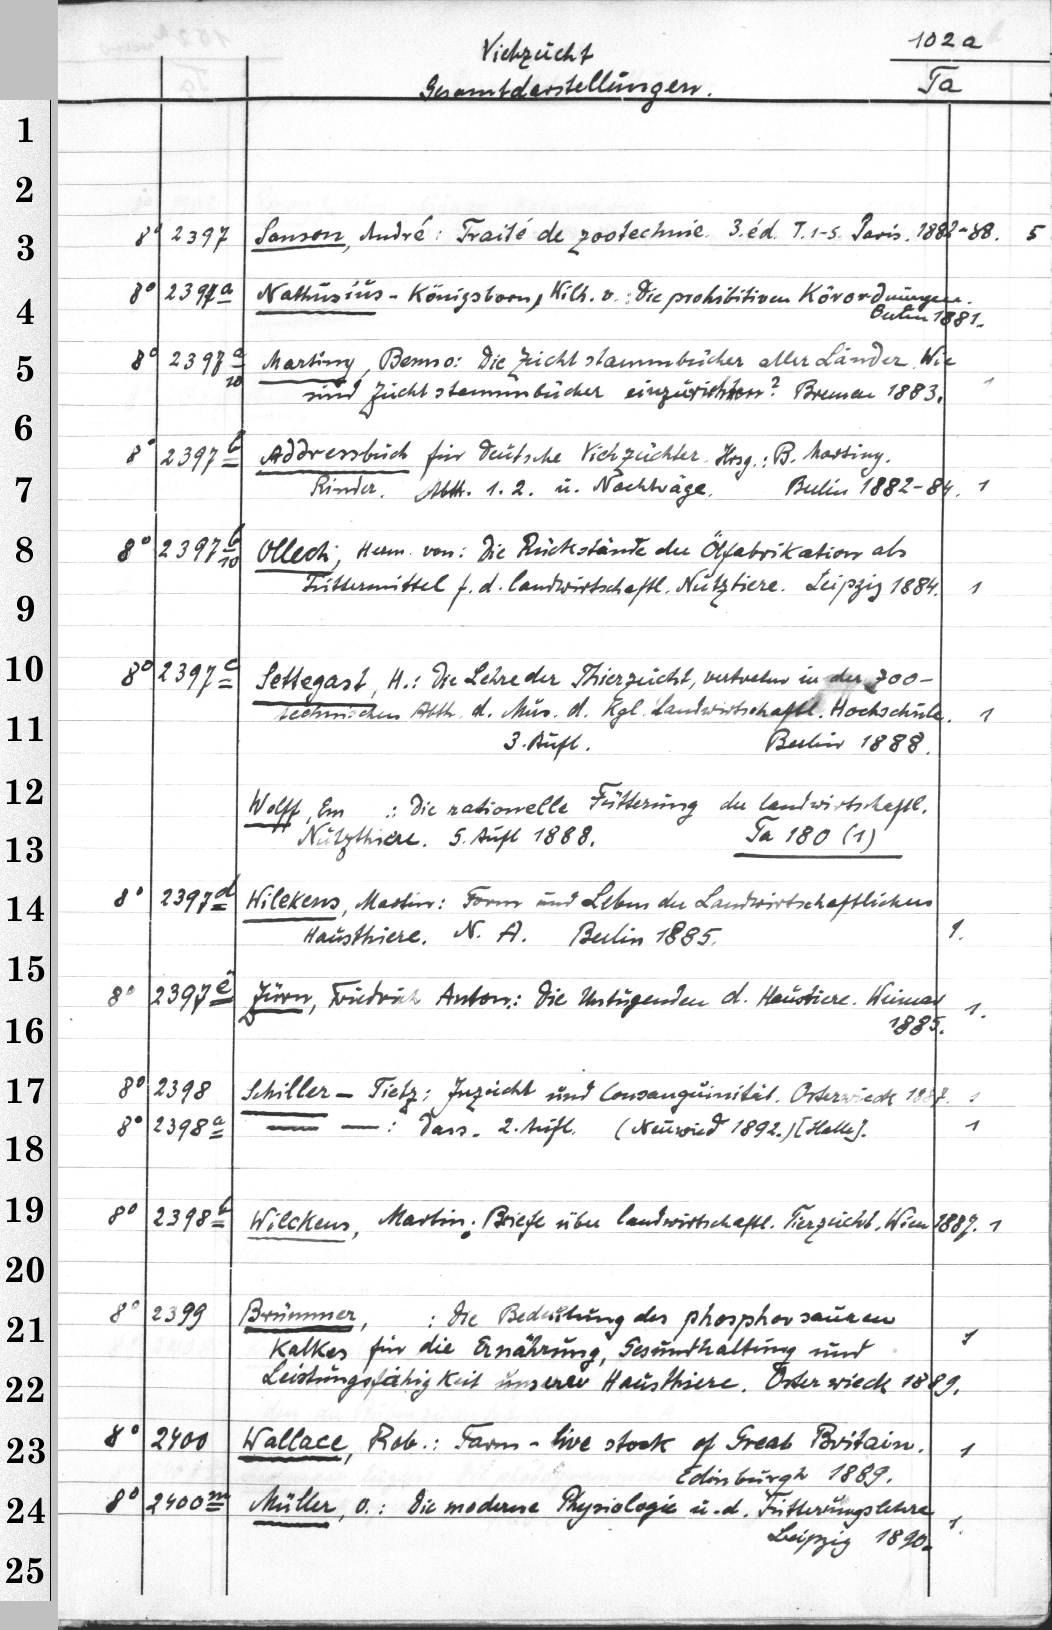 102a
Viehzucht
Gesamtdarstellungen.
Ta
1
2
3
8° 2397 Sanson, André: Traité de zootechnie. 3.éd. T.1-5. Paris. 1882-88. 5
4
8° 2397a Nathusius-Königsborn, Wilh. v.: Die prohibitiven Körordnungen.
Berlin 1881.
5
8° 2397a/10 Martiny, Benno: Die Zuchtstammbücher aller Länder. Wie
sind Zuchtstammbücher einzurichten? Bremen 1883. 1
6
8° 2397b Addressbuch für Deutsche Viehzüchter. Hrsg.: B. Martiny.
7
Rinder. Abth. 1.2. u. Nachträge. Berlin 1882-84. 1
8
8° 2397b/10 Ollech, Herm. von: Die Rückstände der Ölfabrikation als
9
Futtermittel f. d. landwirtschaftl. Nutztiere. Leipzig 1884. 1
10
8° 2397c Settegast, H.: Die Lehre der Thierzucht, vertreten in der zoo-
11
technischen Abth. d. Mus. d. Kgl. Landwirtschaftl. Hochschule. 1
3. Aufl. Berlin 1888.
12
Wolff, Em : Die rationelle Fütterung der landwirtschaftl.
13
Nutzthiere. 5. Aufl 1888. Ta 180 (1)
14
8° 2397d Wilckens, Martin: Form und Leben der Landwirtschaftlichen
Hausthiere. N. A. Berlin 1885. 1.
15
8° 2397e Zürn, Friedrich Anton: Die Untugenden d. Haustiere. Weimar
16
1885. 1.
17
8° 2398 Schiller-Tietz: Inzucht und Consanguinität. Osterwieck 1887. 1
8° 2398a — —: Dass. 2. Aufl. (Neuwied 1892.) [Halle]. 1
18
19
8° 2398b Wilckens, Martin: Briefe über landwirtschaftl. Tierzucht. Wien 1887. 1
20
21
8° 2399 Brümmer, : Die Bedeutung des phosphorsauren
Kalkes für die Ernährung, Gesundhaltung und 1
22
Leistungsfähigkeit unserer Hausthiere. Osterwieck 1889.
23
8° 2400 Wallace, Rob.: Farm-live stock of Great Britain. 1
Edinburgh 1889.
24
8° 2400m Müller, O.: Die moderne Physiologie u. d. Fütterungslehre
Leipzig 1890. 1.
25